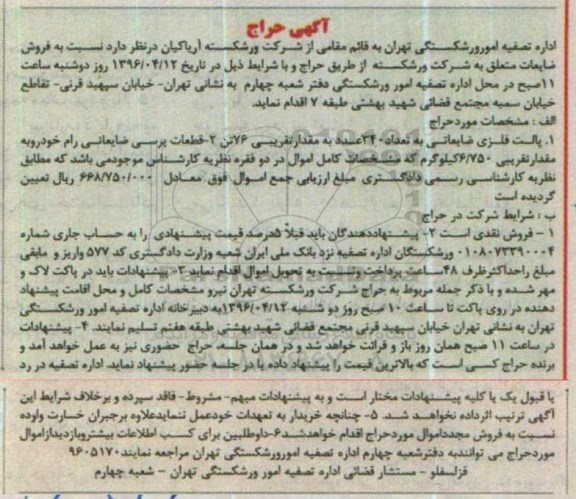 آگهی حراج
اداره تصفیه امورورشکستگی تهران به قائم مقامی از شرکت ورشکسته آریاکیان درنظر دارد نسبت به فروش
ضایعات متعلق به شرکت ورشکسته از طریق حراج و با شرایط ذیل در تاریخ ۱۳۹۶/۰۴/۱۲ روز دوشنبه ساعت
۱۱صبح در محل اداره تصفیه امور ورشکستگی دفتر شعبه چهارم به نشانی تهران- خیابان سپهبد قرنی- تقاطع
خیابان سمیه مجتمع قضائی شهید بهشتی طبقه ۷ اقدام نماید.
الف : مشخصات موردحراج
۱. پالت فلزی ضایعاتی به تعداد۳۴۰عدد به مقدارتقریبی ۷۶تن ۲-قطعات پرسی ضایعاتی رام خودروبه
مقدارتقریبی ۶/۷۵۰کیلوگرم که مشخصات کامل اموال در دو فقره نظریه کارشناس موجودمی باشد که مطابق
نظریه کارشناسی رسمی دادگستری مبلغ ارزیابی جمع اموال فوق معادل ۶۶۸/۷۵۰/۰۰۰ ریال تعیین
گردیده است
ب : شرایط شرکت در حراج
۱ - فروش نقدی است ۲- پیشنهاددهندگان باید قبلاً ۵درصد قیمت پیشنهادی را به حساب جاری شماره
۰۱۰۸۰۷۳۳۹۰۰۰۴ ورشکستگان اداره تصفیه نزد بانک ملی ایران شعبه وزارت دادگستری کد ۵۷۷ واریز و مابقی
مبلغ راحداکثرظرف ۴۸ساعت پرداخت ونسبت به تحویل اموال اقدام نماید ۳-پیشنهادات باید در پاکت لاک و
مهر شده و با ذکر جمله مربوط به حراج شرکت ورشکسته تهران نیرو مشخصات کامل و محل اقامت پیشنهاد
دهنده در روی پاکت تا ساعت ۱۰ صبح روز دو شنبه ۱۳۹۶/۰۴/۱۲به دبیرخانه اداره تصفیه امور ورشکستگی
تهران به نشانی تهران خیابان سپهبد قرنی مجتمع قضائی شهیدبهشتی طبقه هفتم تسلیم نمایند. ۴- پیشنهادات
در ساعت ۱۱ صبح همان روز باز و قرائت خواهد شد و در همان جلسه، حراج حضوری نیز به عمل خواهد آمد و
برنده حراج کسی است که بالاترین قیمت را پیشنهاد داده یا در جلسه حضور پیشنهاد نماید. اداره تصفیه در رد
یا قبول یک یا کلیه پیشنهادات مختار است و به پیشنهادات مبهم- مشروط- فاقد سپرده و برخلاف شرایط این
آگهی ترتیب اثرداده نخواهد شد. ۵- چنانچه خریدار به تعهدات خودعمل ننمایدعلاوه برجبران خسارت وارده
نسبت به فروش مجدداموال موردحراج اقدام خواهدشد۶-داوطلبین برای کسب اطلاعات بیشتروبازدیدازاموال
موردحراج می توانندبه دفترشعبه چهارم اداره تصفیه امورورشکستگی تهران مراجعه نمایند ۹۶۰۵۱۷۰
قزلسفلو - مستشار قضائی اداره تصفیه امور ورشکستگی تهران - شعبه چهارم